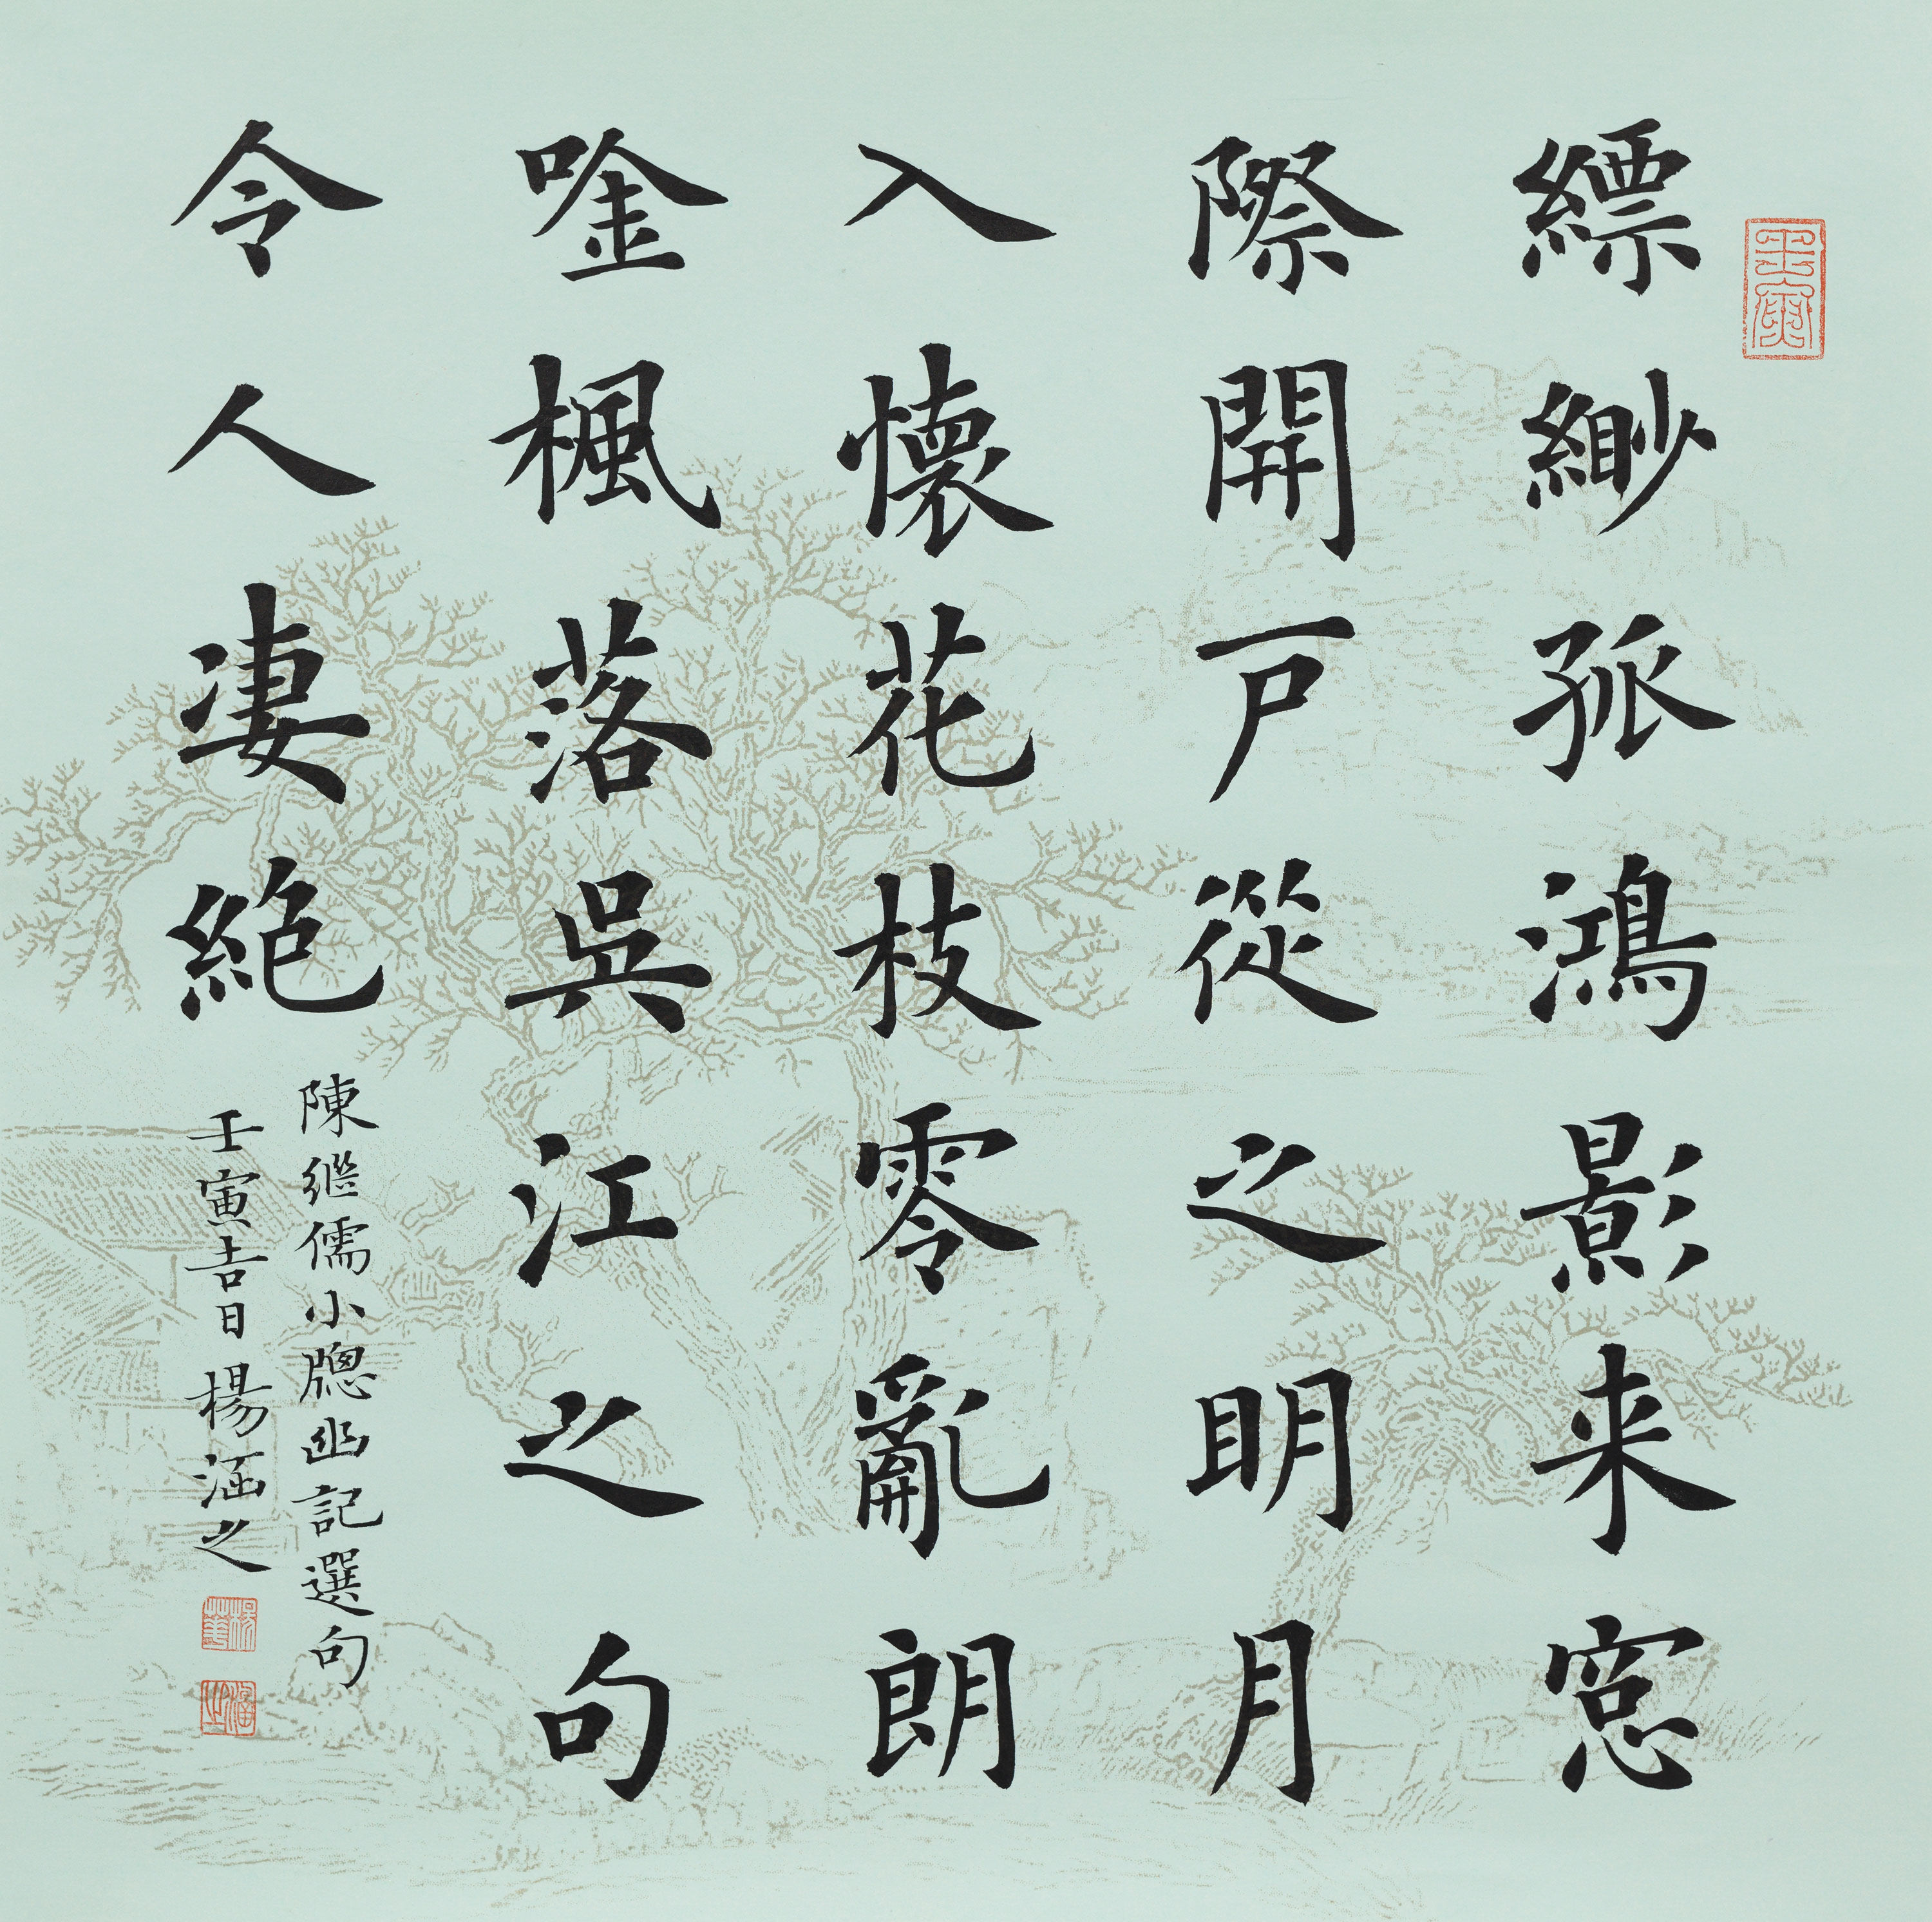 縹緲孤鴻影来窓
際開戸從之明月
入懷花枝零亂朗
唫楓落吳江之句
令人凄絶
陳継儒小牕幽記選句
壬寅吉日楊涵之
涵之